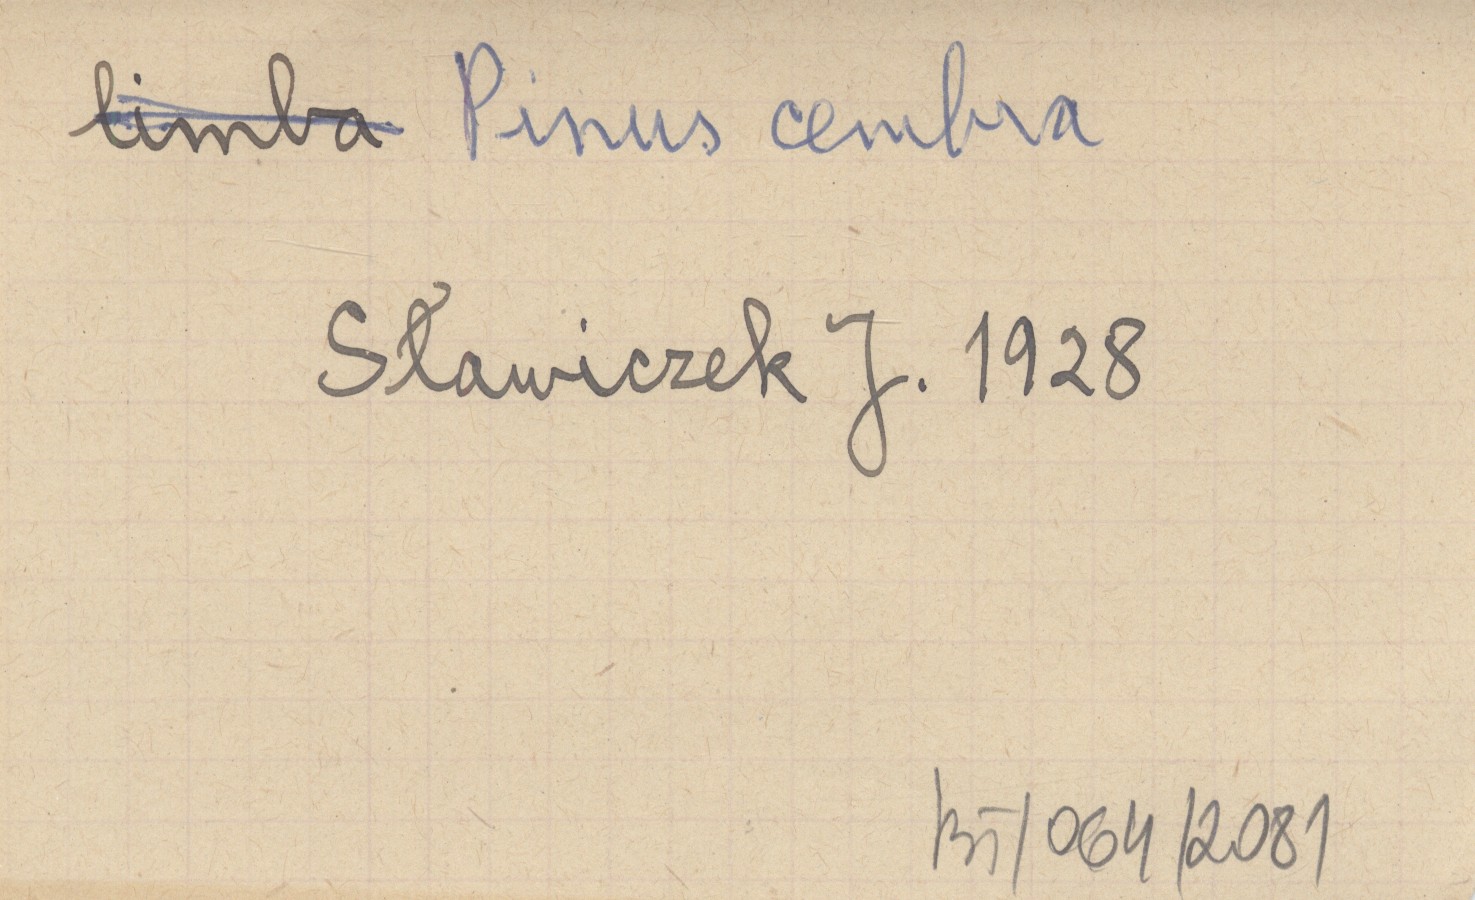 limba Pinus cembra
Sławiczek J. 1928
/064/2081